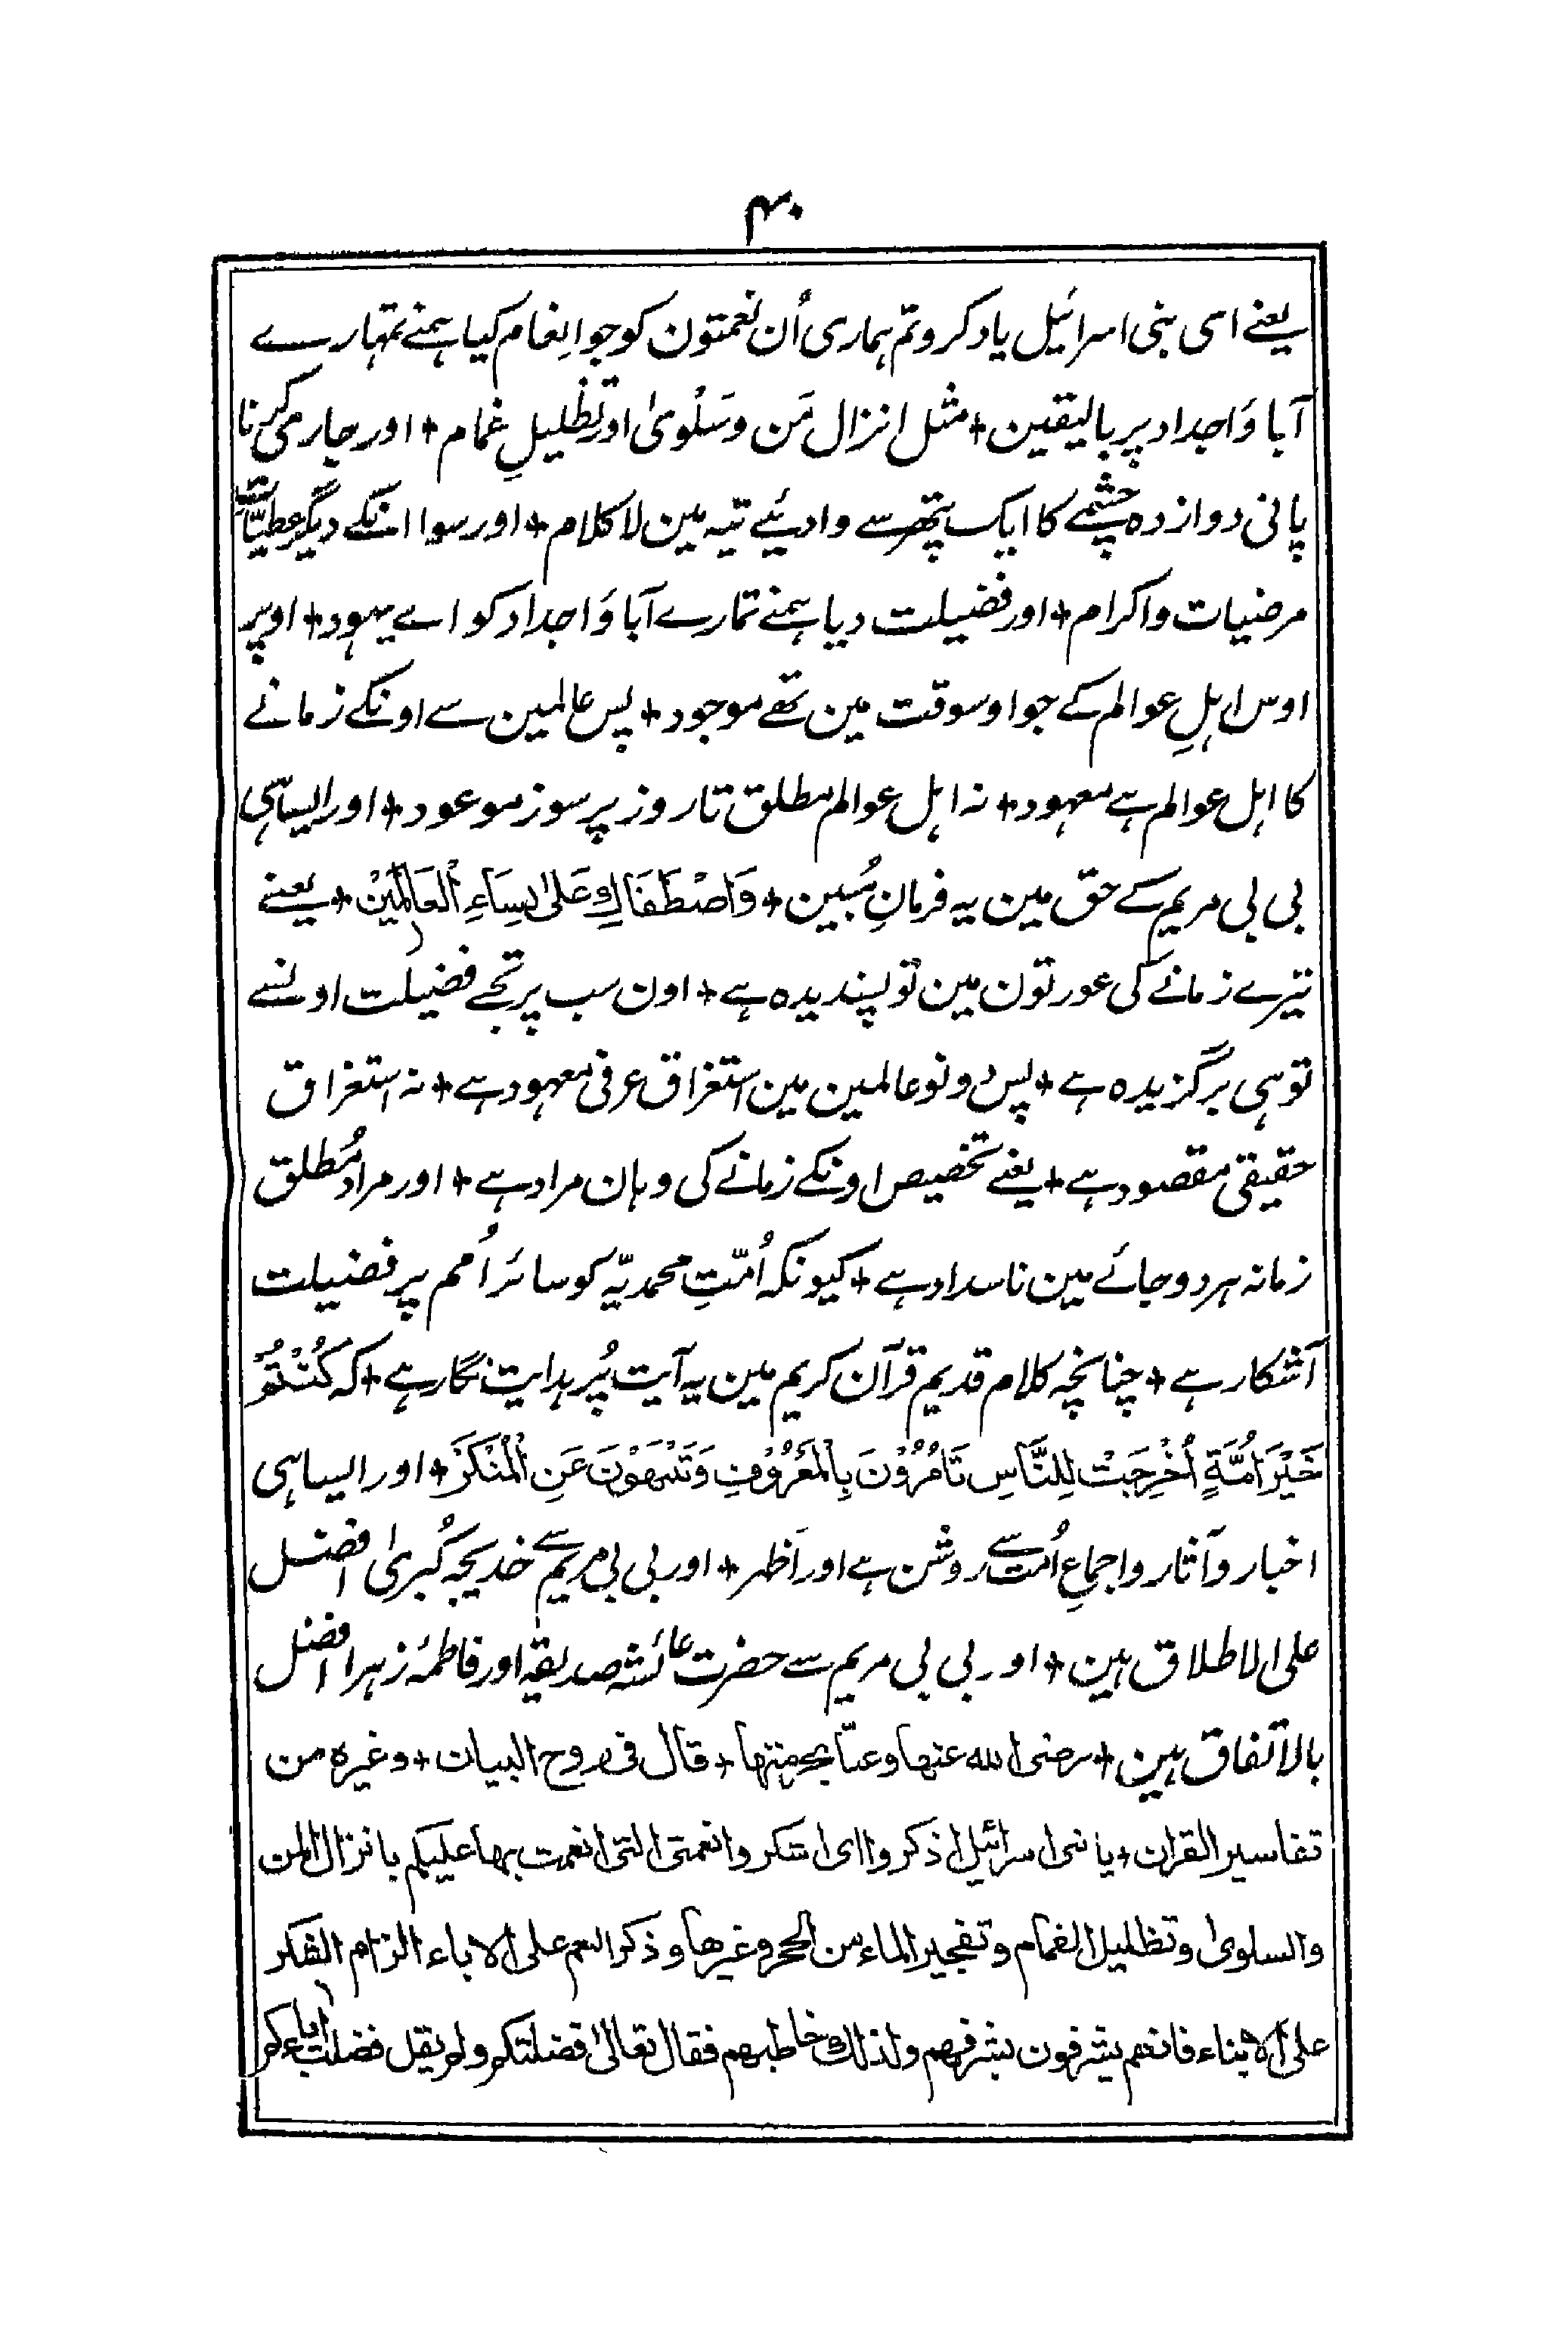 ۴۰
یعنے اسی بنی اسرائیل یاد کرو تم ہماری اُن نعمتون کو جو اِنعام کیا ہمنے تمہارے
آبا وَاجداد پر بالیقین + مثل انزال مَن وسَلْویٰ اور تظلیلِ غمام + اور جاری کرنا
پانی دوازدہ چشمے کا ایک پتھر سے وادئیے تیہ مین لا کلام + اور سوا انکے دیگر عطیّات
مرضیات واکرام + اور فضیلت دیا ہمنے تمارے آبا وَاجداد کو اے یہود + اوپر
اوس اہلِ عوالم کے جو اوسوقت مین تھے موجود + پس عالمین سے اونکے زمانے
کا اہل عوالم ہے معہود + نہ اہل عوالم مطلق تا روز پرسوز موعود + اور ایساہی
بی بی مریم کے حقّ مین یہ فرمانِ مُبین + وَاصْطَفَاكِ عَلیٰ نِسَاءِ الْعَالَمِیْنَ + یعنے
تیرے زمانے کی عورتون مین تو پسندیدہ ہے + اون سب پر تجھے فضیلت اونسے
توہی برگزیدہ ہے + پس دونو عالمین مین استغراق عرفی معہود ہے + نہ استغراق
حقیقی مقصود ہے + یعنے تخصیص اونکے زمانے کی وہان مراد ہے + اور مراد مُطلق
زمانہ ہر دو جائے مین ناسداد ہے + کیونکہ اُمّتِ محمدیّہ کو سائر اُمم پر فضیلت
آشکار ہے + چنانچہ کلام قدیم قرآن کریم مین یہ آیت پُر ہدایت نگار ہے + کہ کُنْتُمْ
خَیْرَ اُمَّةٍ اُخْرِجَتْ لِلنَّاسِ تَامُرُوْنَ بِالْمَعْرُوْفِ وَتَنْهَوْنَ عَنِ الْمُنْکَرِ + اور ایساہی
اخبار وآثار واجماعِ اُمت سے روشن ہے اور اَظہر + اور بی بی مریم سے خدیجہ کُبریٰ افضل
علی الاطلاق ہین + اور بی بی مریم سے حضرت عائشہ صدیقہ اور فاطمۂ زہرا افضل
بالاتفاق ہین + رضی الله عنها وعنّا بحرمتها + قال فی روح البیان + وغیره من
تفاسیر القران + یا بنی اسرائیل اذکروا ای اشکروا نعمتی التی انعمت بها علیکم بانزال المن
والسلوی وتظلیل الغمام وتفجیر الماء من الحجر وغیرها وذکر النعم علی الاباء الزام الشکر
علی الابناء فانهم یشرفون بشرفهم ولذلك خاطبهم فقال تعالیٰ فضلتکم ولم یقل فضلت اباءکم